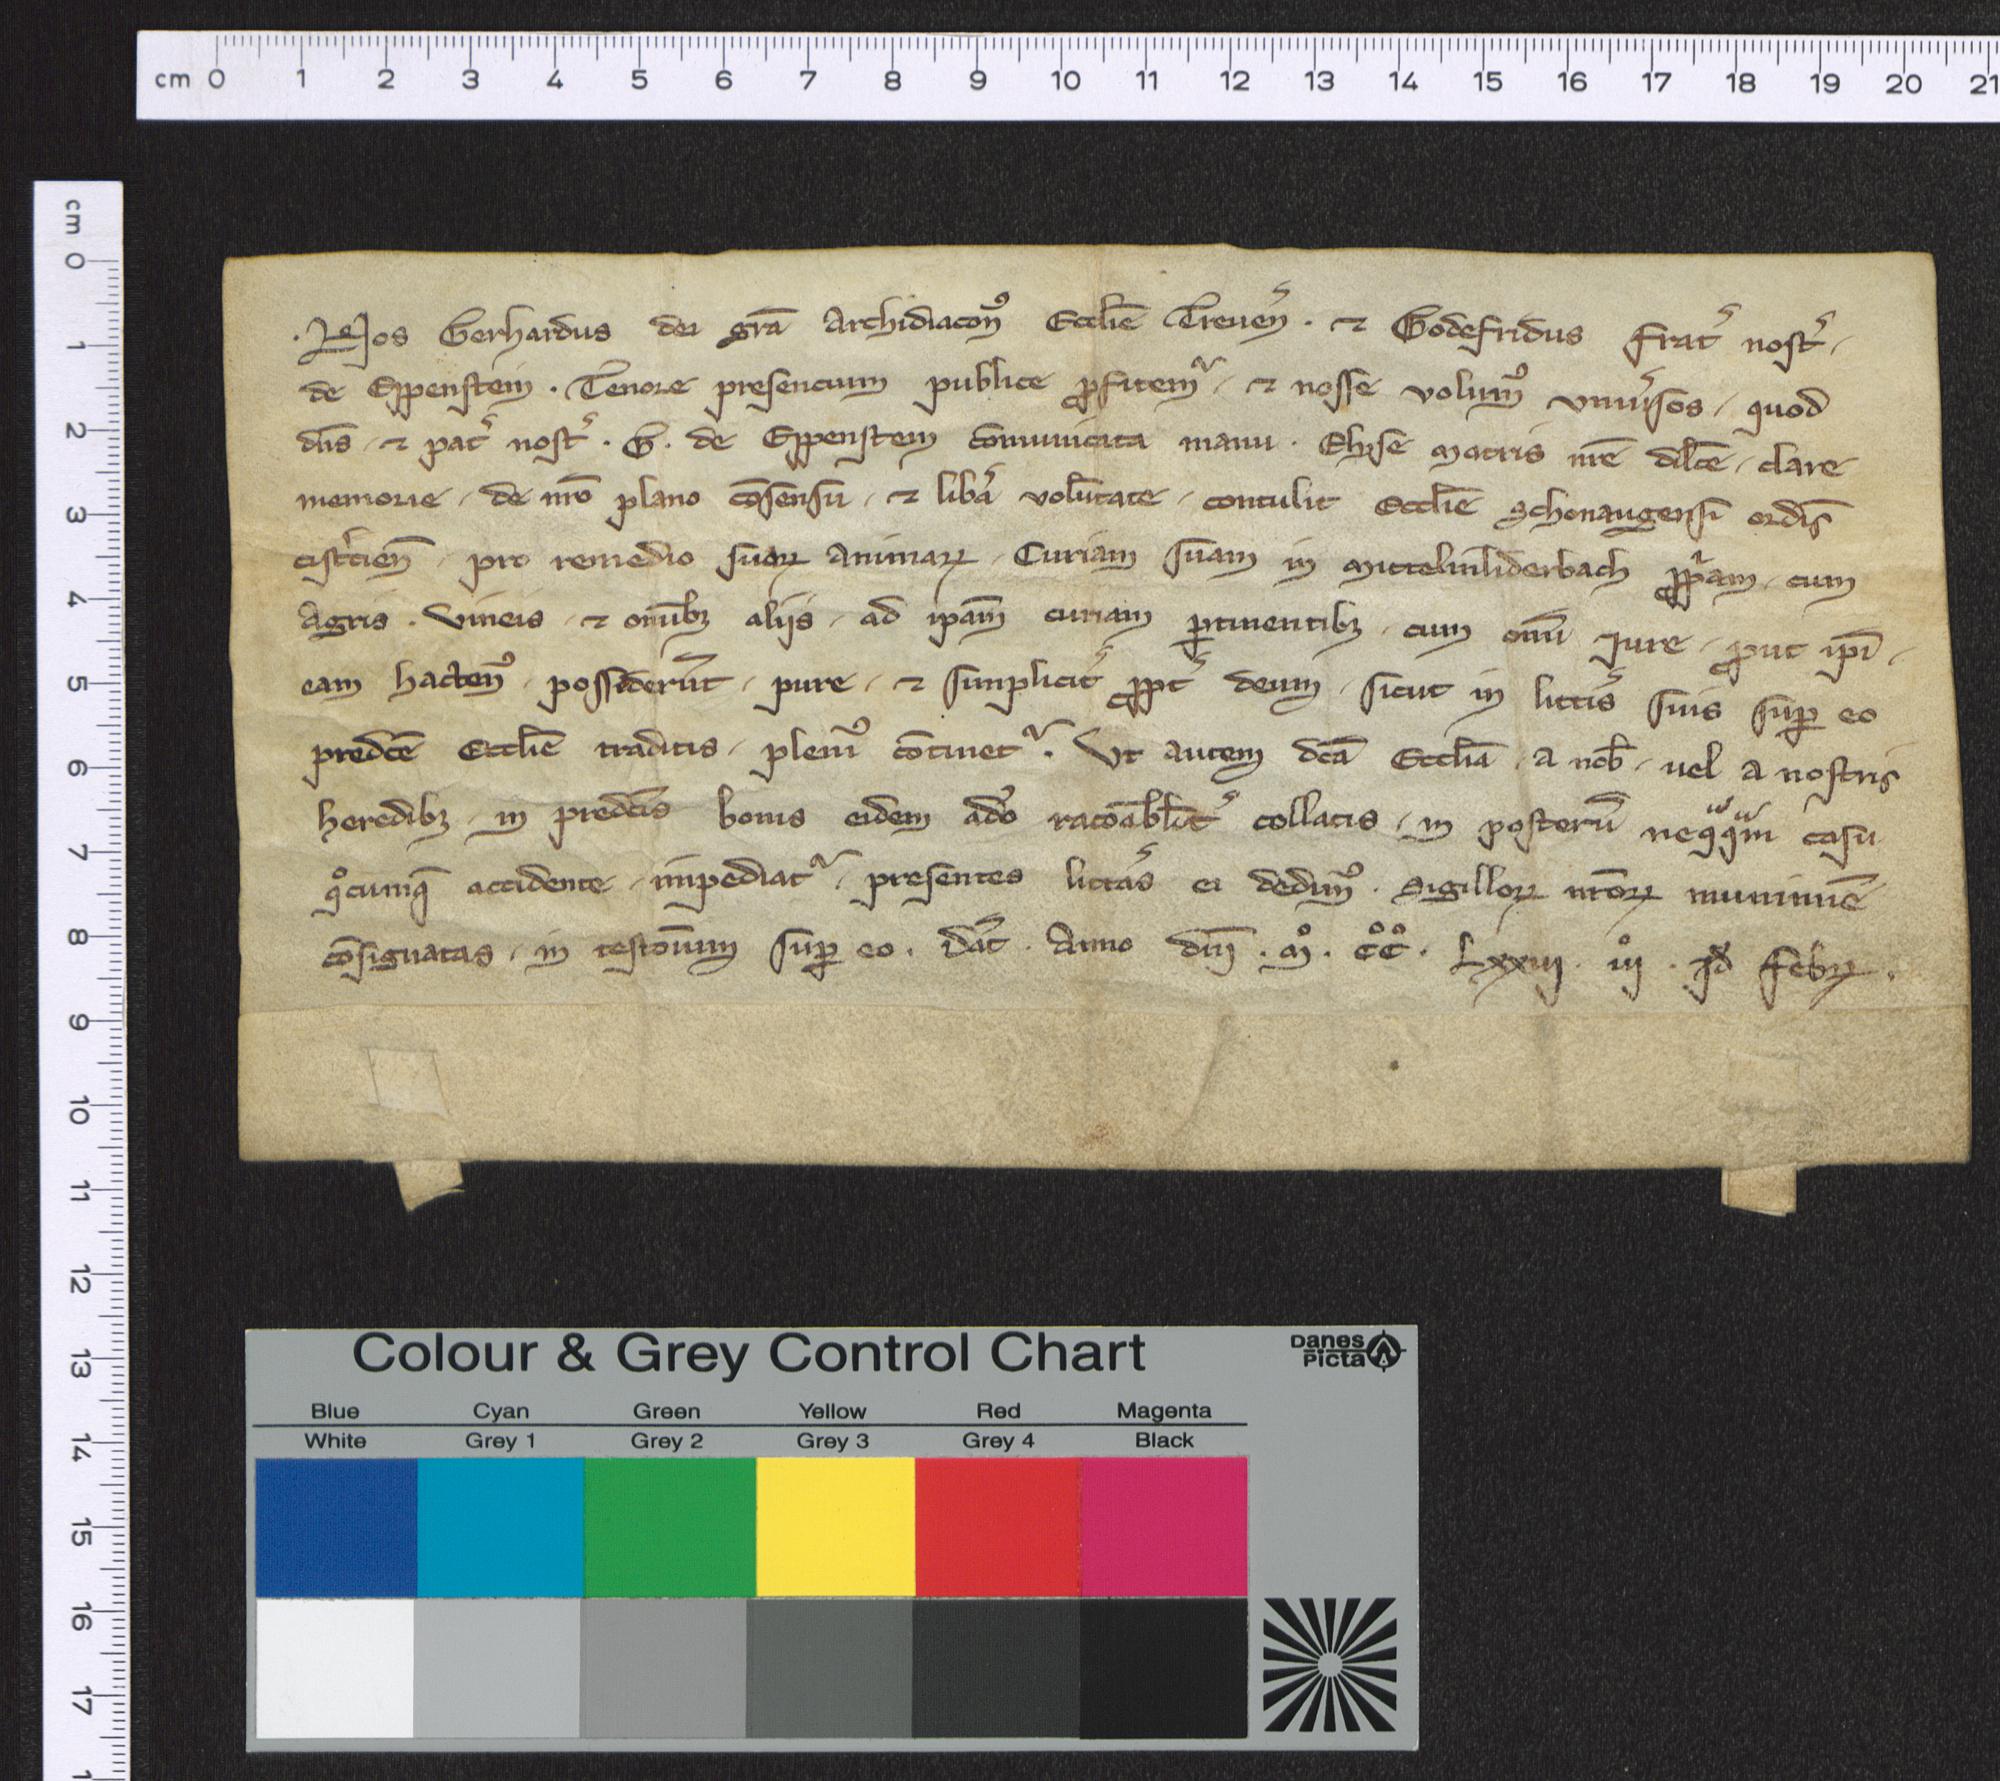 cm 0 1 2 3 4 5 6 7 8 9 10 11 12 13 14 15 16 17 18 19 20 21
cm 0 1 2 3 4 5 6 7 8 9 10 11 12 13 14 15 16 17
. Nos Gerhardus dei gr̄a Archidiacon᷒ Eccl̄ie Treueñ . ⁊ Godefridus frat͛ nost͛ .
de Eppenstein . Tenore presencium publice ꝓfitem᷑ . ⁊ nosse volum᷒ vniu͛sos . quod
dn̄s . ⁊ pat͛ nost͛ . G . de Eppenstein cōmunicata manu . Elyse matris nr̄e dil̄ce . clare
memorie . de nr̄o plano cōsensu . ⁊ lib͛a volūtate . contulit Eccl̄ie Schonaugensi ordīs
cist͛cien̄ . pro remedio suoꝝ animaꝝ . Curiam suam in Mittelinliderbach ꝓpͥam . cum
Agris . vineis . ⁊ om̄ibꝫ alijs . ad ip̄am curiam ꝑtinentibꝫ . cum om̄i Jure . ꝓut ip̄i .
eam hacten᷒ . possiderūt . pure . ⁊ simplicit͛ ꝓpt͛ deum . sicut in litt͛is suis suꝑ eo
predc̄e Eccl̄ie traditis . pleni᷒ cōtinet᷑ . Vt autem dc̄a Eccl̄ia . a nob̄ . uel a nostris
heredibꝫ . in predc̄is bonis eidem adeo rac̄oabilit͛ collatis . in posterū neqͣqͣm casu
qͦcumqꝫ accidente . impediat᷑ . presentes litt͛as ei dedim᷒ . Sigilloꝝ nr̄oꝝ munimīe
cōsignatas . in testoīum suꝑ eo . Dat̄ . Anno dn̄i . Mͦ . CͦCͦ . Lxxiij . iijͦ . Jd̄ febꝝ .
Colour & Grey Control Chart
Danes Picta
Blue Cyan Green Yellow Red Magenta
White Grey 1 Grey 2 Grey 3 Grey 4 Black